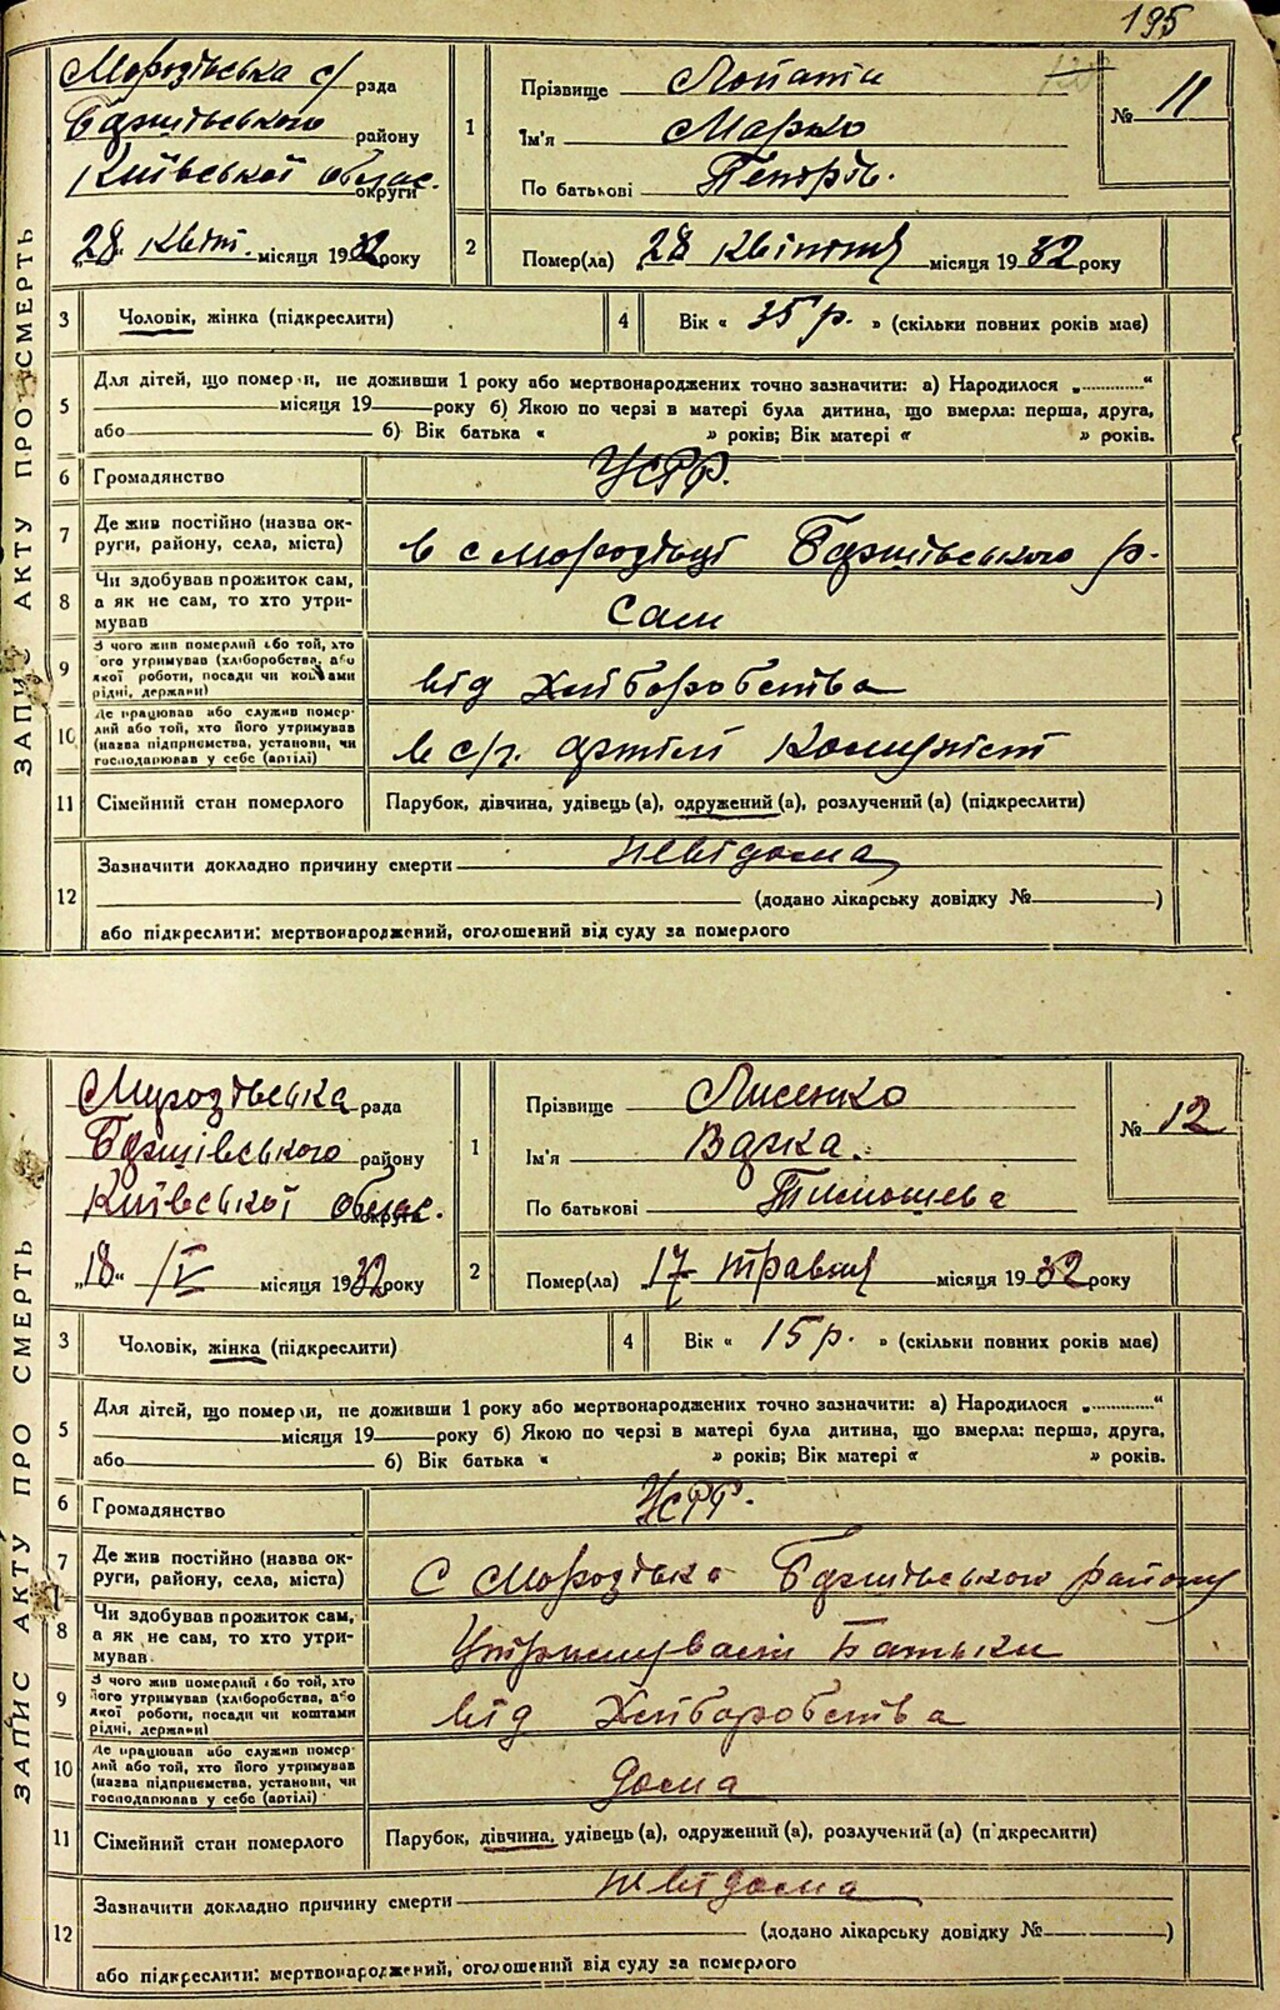 195
ЗАПИС АКТУ ПРО СМЕРТЬ
Морозівська с/ рада
Баришівського району
Київської облас. округи
„28“ квіт. місяця 1932 року
1
Прізвище Лопата
Ім'я Марко
По батькові Петрів.
№ 11
2
Помер(ла) „28 квітня місяця 1932 року
3 Чоловік, жінка (підкреслити)
4 Вік « 35 р. » (скільки повних років має)
5 Для дітей, що померли, не доживши 1 року або мертвонароджених точно зазначити: а) Народилося „..............“
місяця 19 року б) Якою по черзі в матері була дитина, що вмерла: перша, друга,
або б) Вік батька « » років; Вік матері « » років.
6 Громадянство УСРР.
7 Де жив постійно (назва ок-
руги, району, села, міста) в с Морозівці Баришівського р.
8 Чи здобував прожиток сам,
а як не сам, то хто утри-
мував сам
9 З чого жив померлий або той, хто
його утримував (хліборобства, або
якої роботи, посади чи коштами
рідні, держави) від хліборобства
10 Де працював або служив помер-
лий або той, хто його утримував
(назва підприємства, установи, чи
господарював у себе (артілі) в с/г. артілі Комуніст
11 Сімейний стан померлого Парубок, дівчина, удівець (а), одружений (а), розлучений (а) (підкреслити)
12 Зазначити докладно причину смерти невідома
(додано лікарську довідку № )
або підкреслити: мертвонароджений, оголошений від суду за померлого
ЗАПИС АКТУ ПРО СМЕРТЬ
Морозівська рада
Баришівського району
Київської облас. округи
„18“ /V місяця 1932 року
1
Прізвище Лисенко
Ім'я Варка.
По батькові Тимошева
№ 12
2
Помер(ла) „17 травня місяця 1932 року
3 Чоловік, жінка (підкреслити)
4 Вік « 15 р. » (скільки повних років має)
5 Для дітей, що померли, не доживши 1 року або мертвонароджених точно зазначити: а) Народилося „..............“
місяця 19 року б) Якою по черзі в матері була дитина, що вмерла: перша, друга,
або б) Вік батька « » років; Вік матері « » років.
6 Громадянство УСРР.
7 Де жив постійно (назва ок-
руги, району, села, міста) С Морозівка Баришівського району
8 Чи здобував прожиток сам,
а як не сам, то хто утри-
мував Батьки
9 З чого жив померлий або той, хто
його утримував (хліборобства, або
якої роботи, посади чи коштами
рідні, держави) від Хліборобства
10 Де працював або служив помер-
лий або той, хто його утримував
(назва підприємства, установи, чи
господарював у себе (артілі) дома
11 Сімейний стан померлого Парубок, дівчина, удівець (а), одружений (а), розлучений (а) (підкреслити)
12 Зазначити докладно причину смерти невідома
(додано лікарську довідку № )
або підкреслити: мертвонароджений, оголошений від суду за померлого